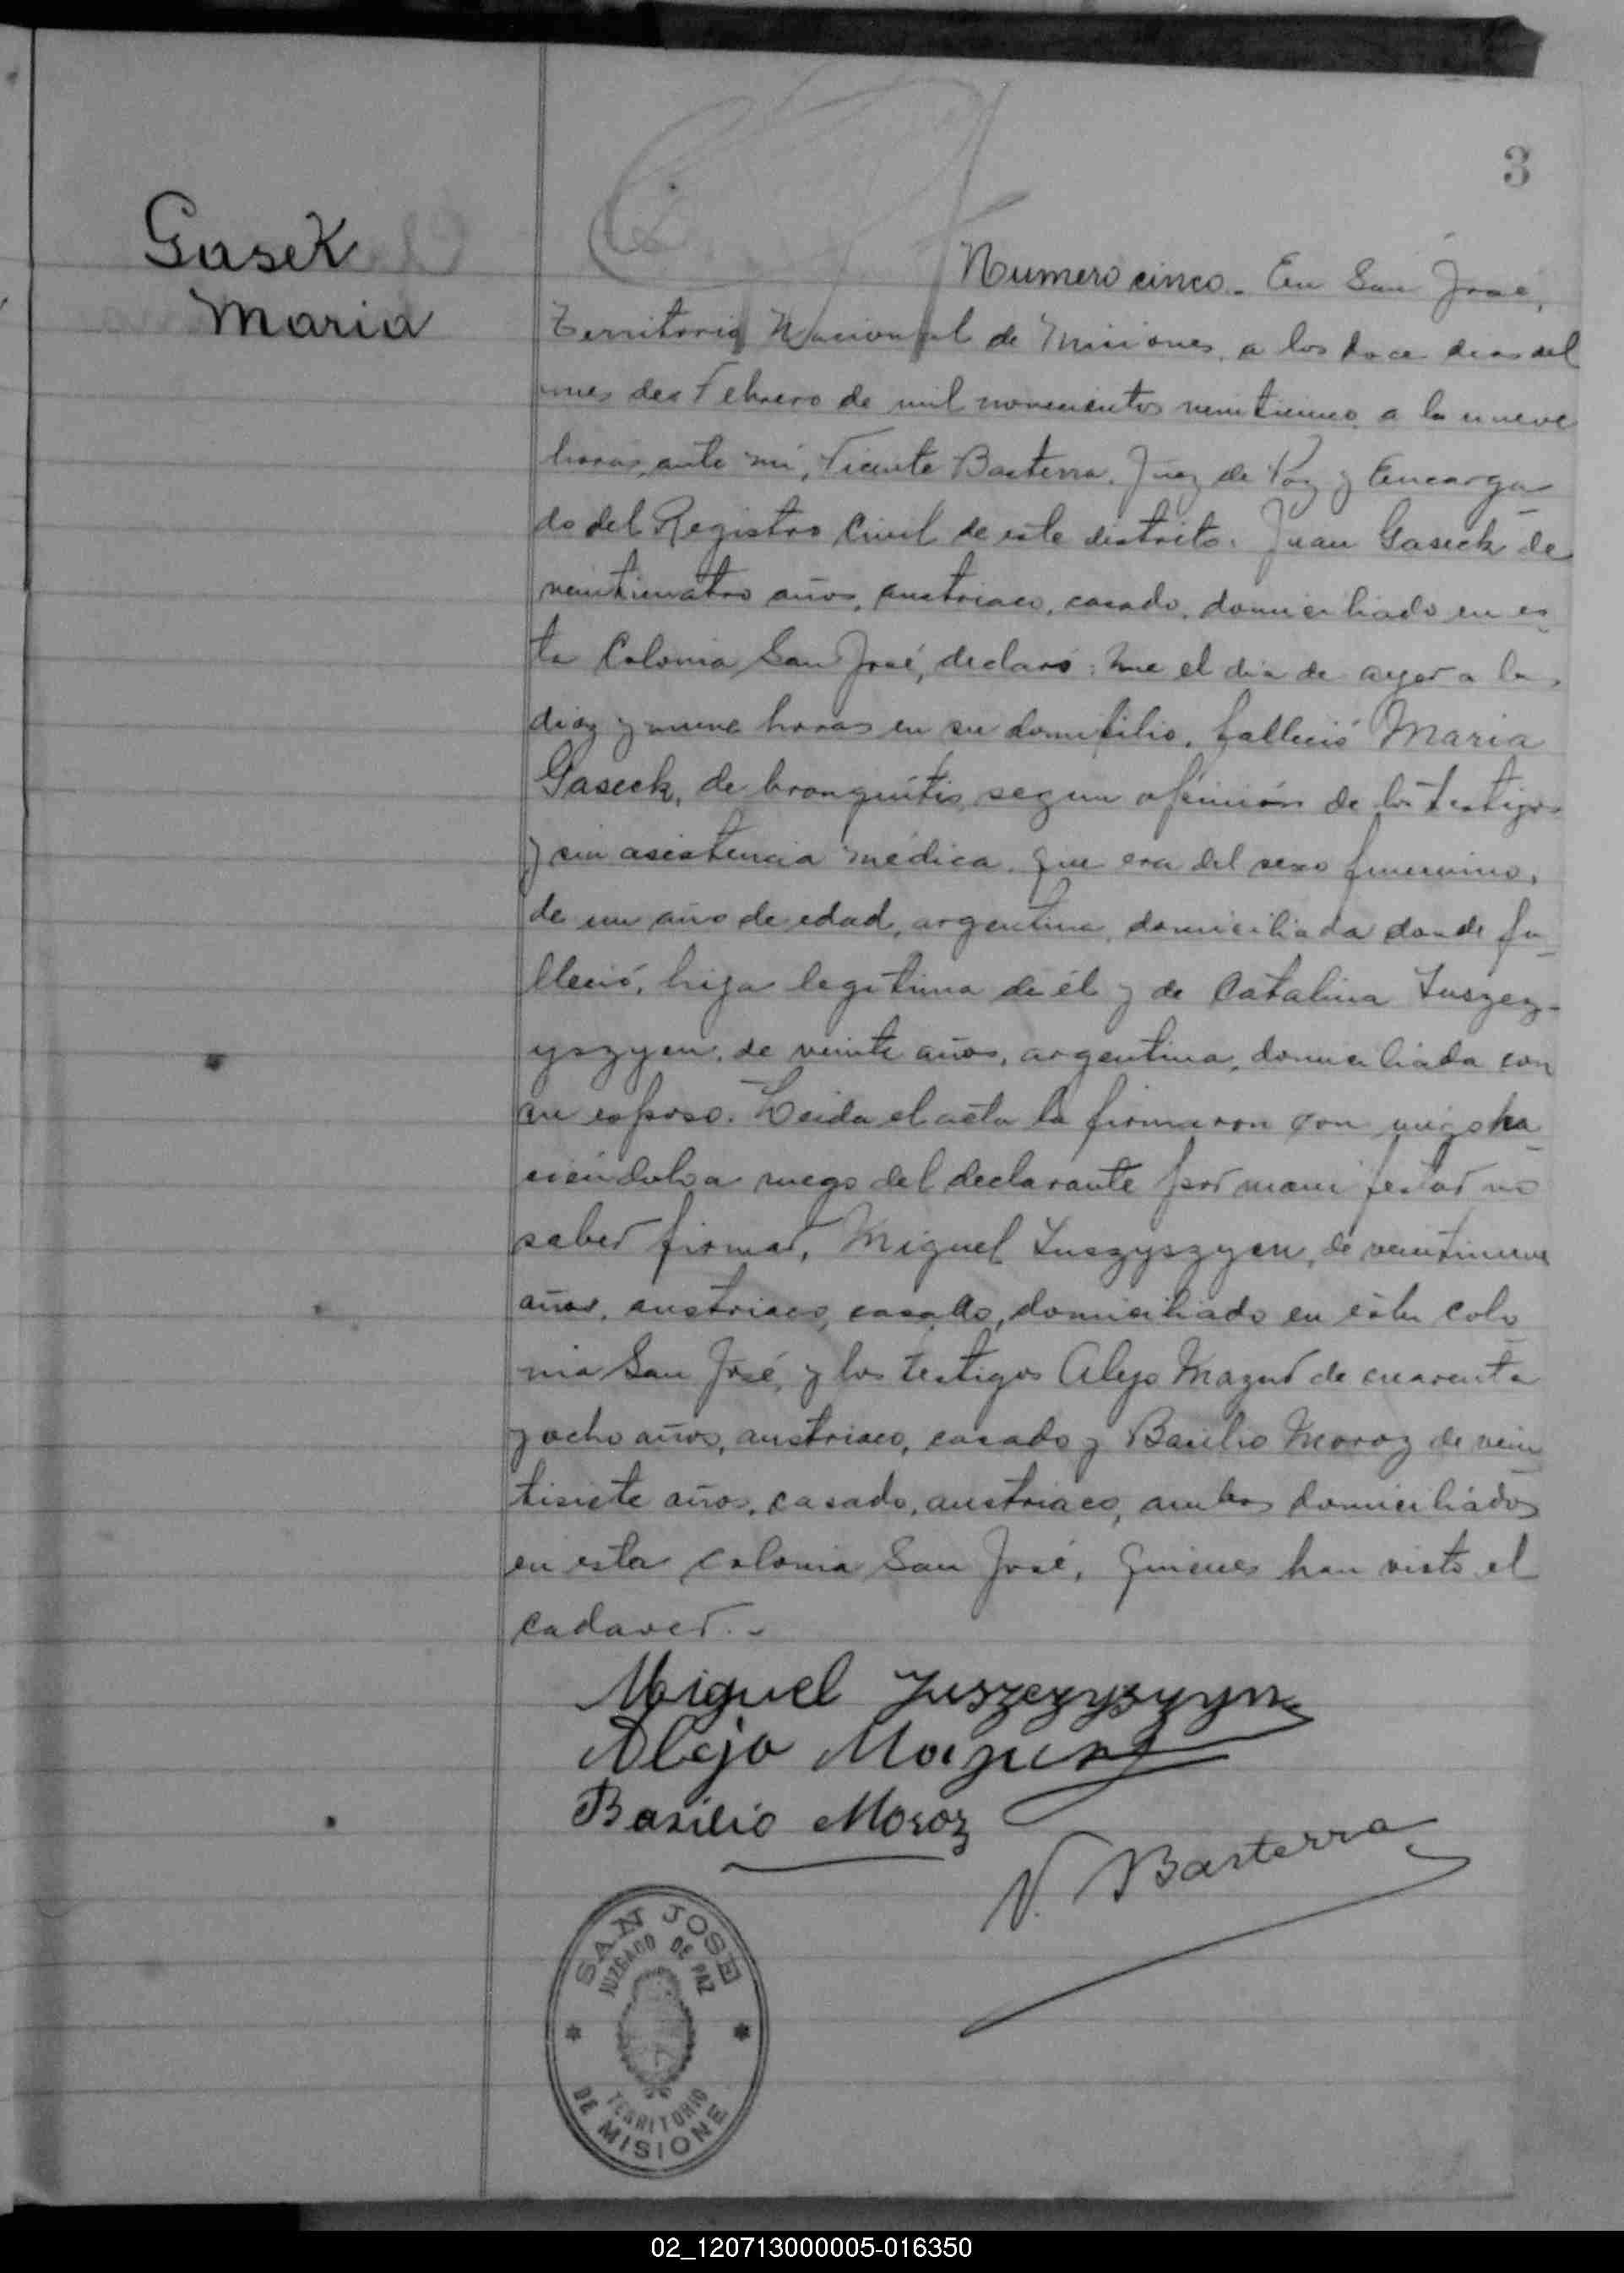 3
Gasek
Maria
Numero cinco. En San José,
Territorio Nacional de Misiones, a los doce dias del
mes de Febrero de mil novecientos veinticinco, a la nueve
horas, ante mi, Vicente Basterra, Juez de Paz y Encarga-
do del Registro Civil de este distrito. Juan Gaseck de
veinticuatro años, austriaco, casado, domiciliado en es-
ta Colonia San José, declaró: Que el dia de ayer a las
diez y nueve horas en su domicilio, falleció Maria
Gaseck, de bronquitis, segun opinión de los testigos
y sin asistencia médica, que era del sexo femenino,
de un año de edad, argentina, domiciliada donde fa-
lleció, hija legitima de él y de Catalina Juszcz-
yszyen, de veinte años, argentina, domiciliada con
su esposo. Leida el acta la firmaron con migo ha-
ciéndolo a ruego del declarante por manifestar no
saber firmar, Miguel Juszyszyen, de veintinueve
años, austriaco, casado, domiciliado en esta Colo-
nia San José, y los testigos Alejo Mazur de cuarenta
y ocho años, austriaco, casado y Basilio Moroz de vein-
tisiete años, casado, austriaco, ambos domiciliados
en esta colonia San José, quienes han visto el
cadaver.-
Miguel Juszczyszyn
Alejo Mazur
Basilio Moroz
V. Basterra
SAN JOSE
JUZGADO DE PAZ
TERRITORIO
DE MISIONE
02_120713000005-016350